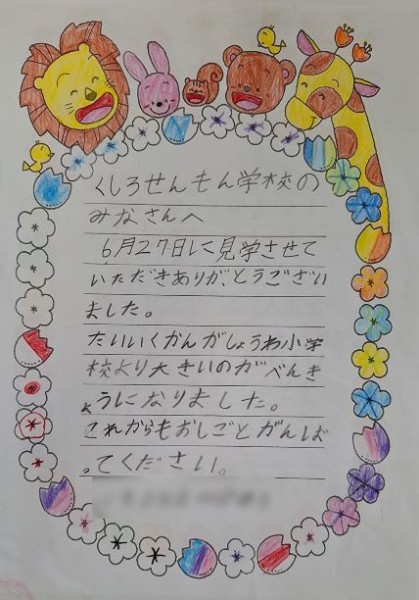 くしろせんもん学校の
みなさんへ
6月27日に見学させて
いただきありがとうござい
ました。
たいいくかんがしょうわ小学
校より大きいのがべんき
ょうになりました。
これからもおしごとがんば
ってください。